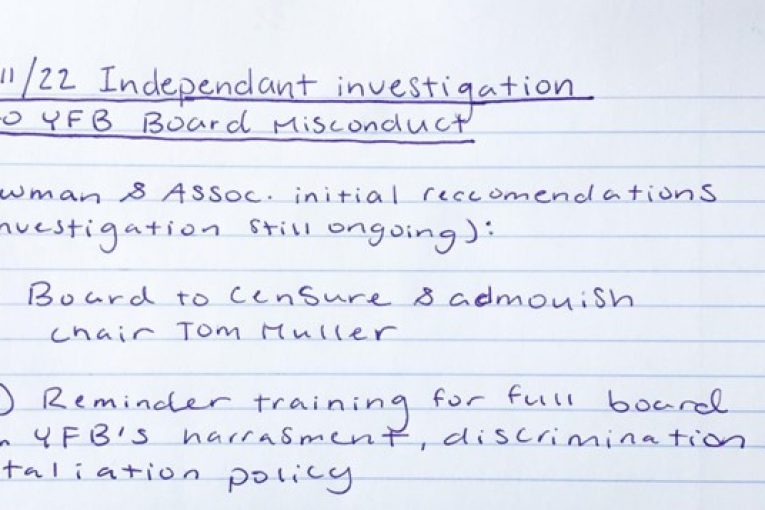 11/22 Independant investigation
o YFB Board Misconduct
wman & Assoc. initial reccomendations
nvestigation still ongoing):
Board to censure & admonish
chair Tom Muller
) Reminder training for full board
n YFB's harrasment, discrimination
taliation policy